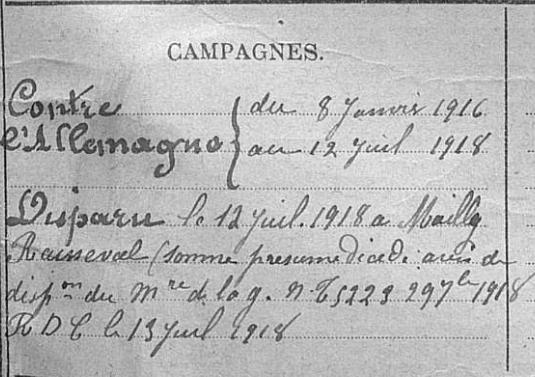 CAMPAGNES.
Contre { du 8 Janvier 1916
l'Allemagne { au 12 Juil 1918
Disparu le 12 Juil. 1918 a Mailly
Raineval (Somme presumé avis de
disp.on du Mre de la g. n. 1918
R D C le 13 Juil 1918